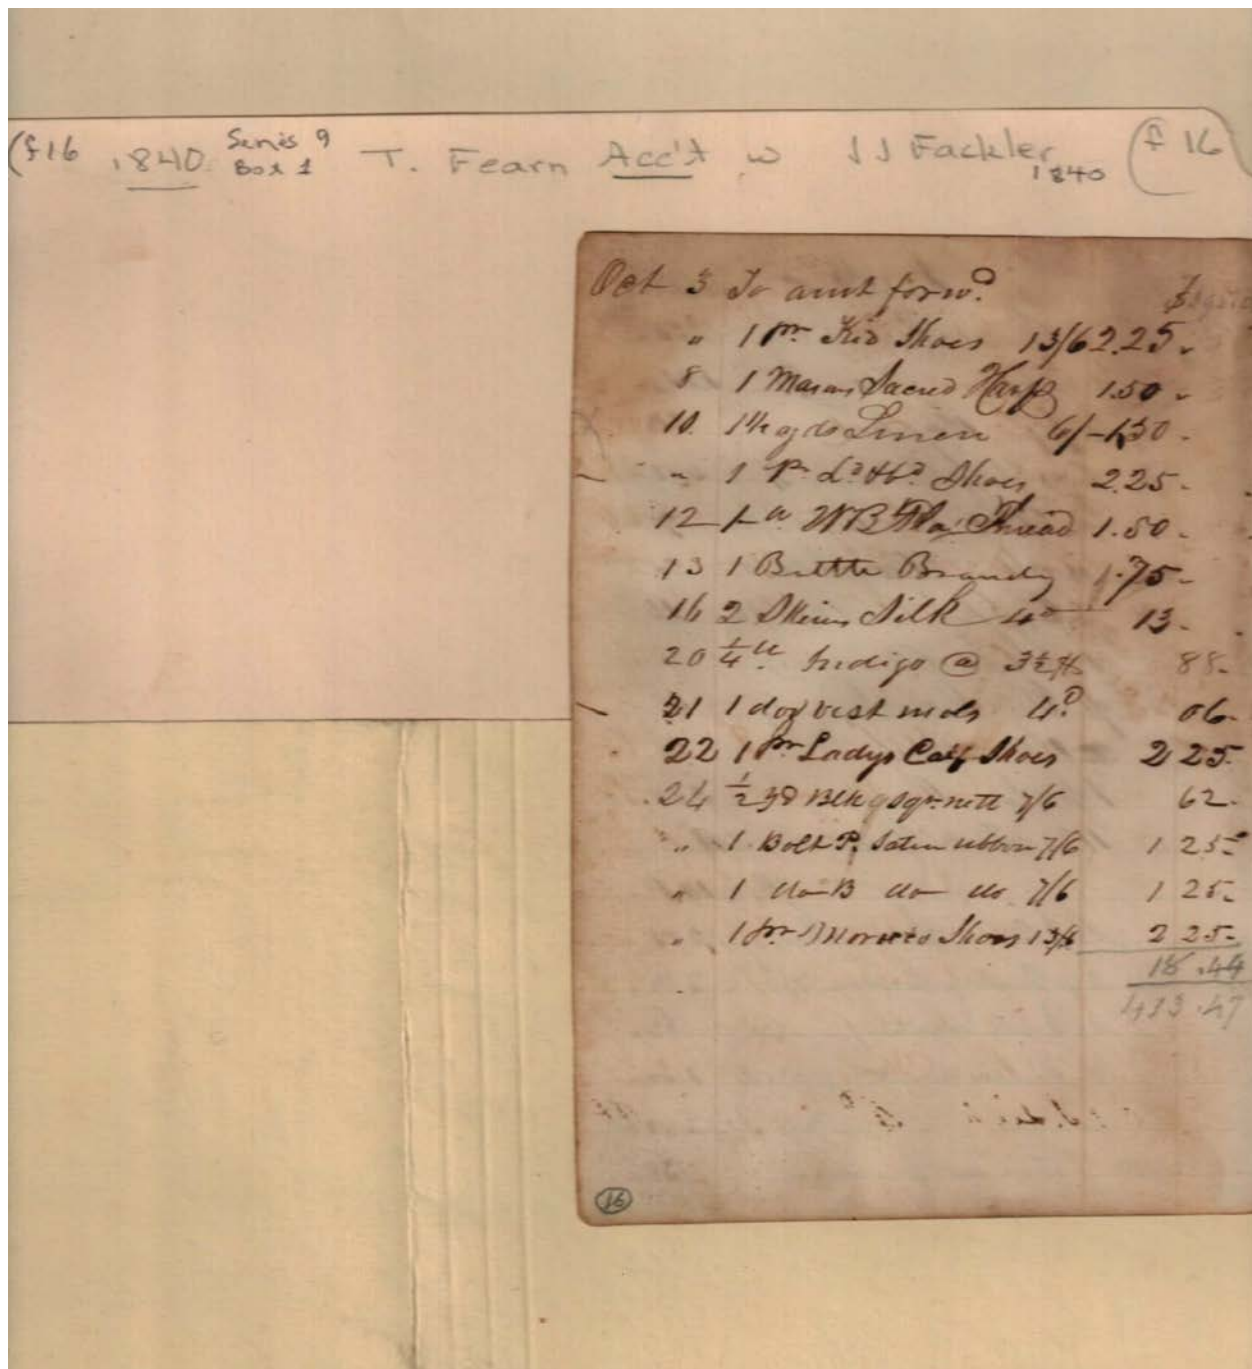 (f16 1840 Series 9 Box 1 T. Fearn Acc't w JJ Fackler 1840 (f 16
Oct 3 To amt forwd. $
" 1 pr. Kid Shoes 13/6 2.25.
8 1 Masons Sacred Harp 1.50.
10. 1 1/2 yds Linen 6/- 1.50.
" 1 Pr. Shoes 2.25-
12 1 Thread 1.50-
13 1 Bottle Brandy 1.75-
16 2 Skeins Silk 4d 13-
20 1/4 " Indigo @ 88-
21 1 doz vest mols 4d 06-
22 1 pr Ladys Calf Shoes 2 25-
24 1/2 yd Blk nett 7/6 62-
" 1 Bolt P. Satin ribbon 7/6 1 25-
" 1 do B do do 7/6 1 25-
" 1 pr Morocco Shoes 13/6 2 25-
18.44
433.47
16